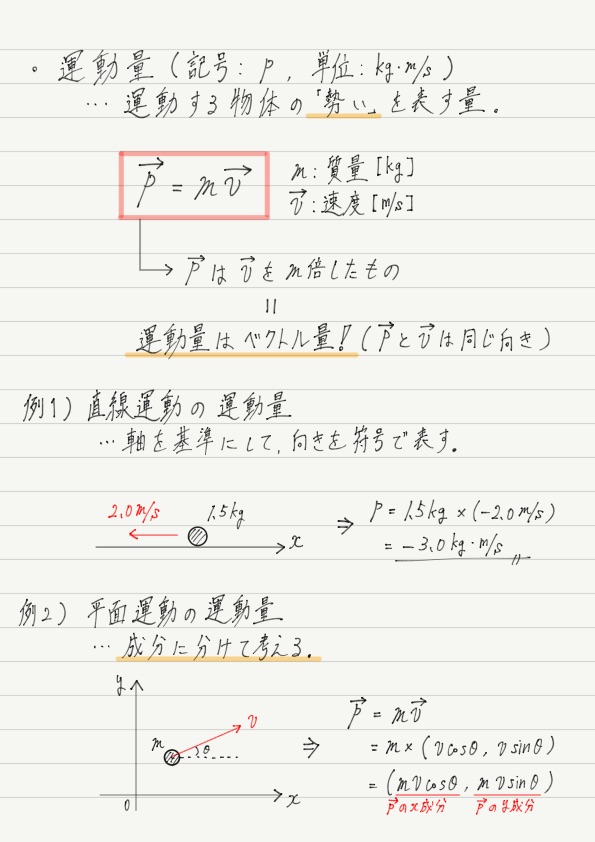 。運動量(記号: p , 単位: kg・m/s)
… 運動する物体の「勢い」を表す量。
p = mv
m: 質量 [kg]
v: 速度 [m/s]
p は v を m倍したもの
=
運動量はベクトル量!(pとvは同じ向き)
例1) 直線運動の運動量
… 軸を基準にして, 向きを符号で表す。
2.0m/s 1.5kg
x
⇒ p = 1.5kg × (-2.0m/s)
= -3.0kg・m/s
例2) 平面運動の運動量
… 成分に分けて考える。
y
m v θ
0 x
⇒ p = mv
= m × (vcosθ, vsinθ)
= (mvcosθ, mvsinθ)
pのx成分 pのy成分